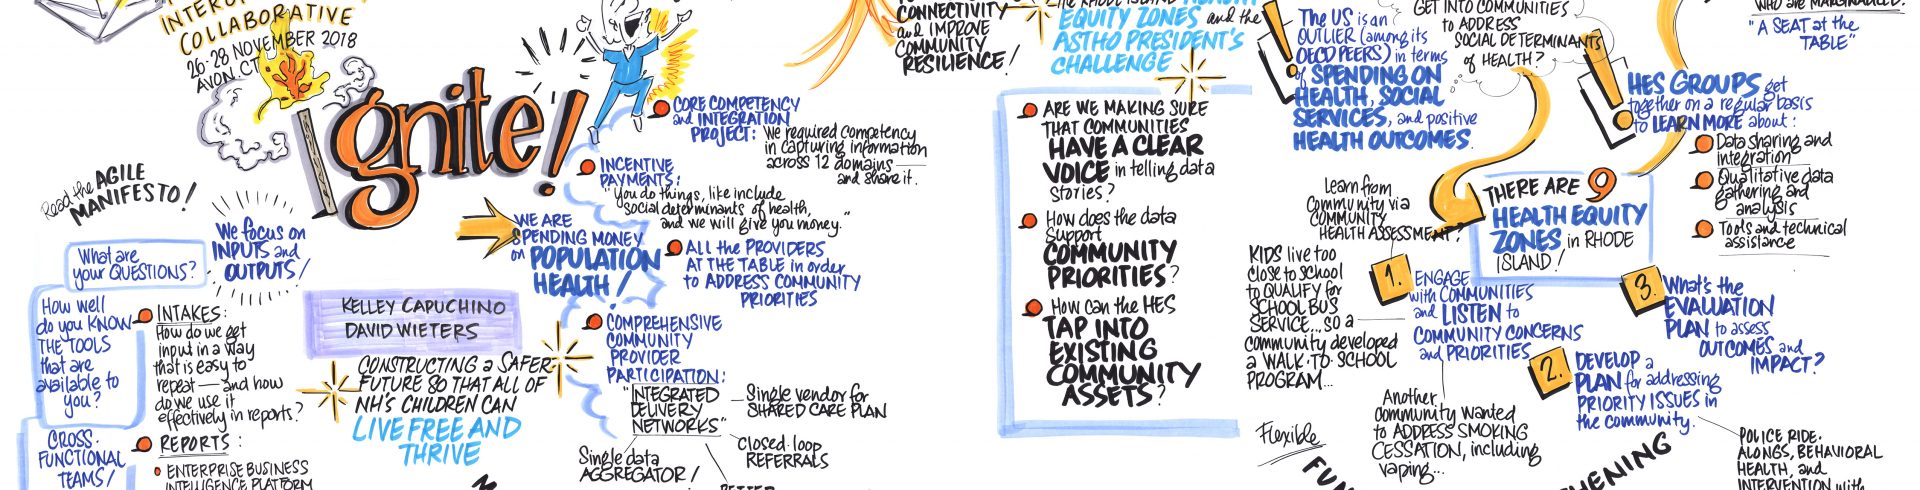 COLLABORATIVE
26-28 NOVEMBER 2018
AVON, CT
Ignite!
Read the AGILE
MANIFESTO!
We focus on
INPUTS and
OUTPUTS!
What are
your QUESTIONS?
How well
do you KNOW
THE TOOLS
that are
available to
you?
CROSS-
FUNCTIONAL
TEAMS!
INTAKES:
How do we get
input in a way
that is easy to
repeat — and how
do we use it
effectively in reports?
REPORTS:
ENTERPRISE BUSINESS
INTELLIGENCE PLATFORM
KELLEY CAPUCHINO
DAVID WIETERS
CONSTRUCTING a SAFER
FUTURE SO THAT ALL OF
NH'S CHILDREN CAN
LIVE FREE AND
THRIVE
WE ARE
SPENDING MONEY
on POPULATION
HEALTH!
CORE COMPETENCY
and INTEGRATION
PROJECT: We required competency
in capturing information
across 12 domains —
and share it.
INCENTIVE
PAYMENTS:
"You do things, like include
social determinants of health,
and we will give you money."
ALL the PROVIDERS
AT THE TABLE in order
to ADDRESS COMMUNITY
PRIORITIES
COMPREHENSIVE
COMMUNITY
PROVIDER
PARTICIPATION:
"INTEGRATED
DELIVERY
NETWORKS"
Single vendor for
SHARED CARE PLAN
Closed loop
REFERRALS
Single data
AGGREGATOR!
CONNECTIVITY
and IMPROVE
COMMUNITY
RESILIENCE!
the RHODE ISLAND HEALTH
EQUITY ZONES and the
ASTHO PRESIDENT'S
CHALLENGE
ARE WE MAKING SURE
THAT COMMUNITIES
HAVE A CLEAR
VOICE in telling data
stories?
How does the data
support
COMMUNITY
PRIORITIES?
How can the HES
TAP INTO
EXISTING
COMMUNITY
ASSETS?
The US is an
OUTLIER (among its
OECD PEERS) in terms
of SPENDING ON
HEALTH, SOCIAL
SERVICES, and positive
HEALTH OUTCOMES.
GET INTO COMMUNITIES
to ADDRESS
SOCIAL DETERMINANTS
of HEALTH?
WHO are MARGINALIZED:
"A SEAT at the
TABLE"
HES GROUPS get
together on a regular basis
to LEARN MORE about:
Data sharing and
integration
Qualitative data
gathering and
analysis
Tools and technical
assistance
THERE ARE 9
HEALTH EQUITY
ZONES, in RHODE
ISLAND!
Learn from
community via
COMMUNITY
HEALTH ASSESSMENT?
KIDS live too
close to school
to QUALIFY for
SCHOOL BUS
SERVICE... so a
community developed
a WALK-TO-SCHOOL
PROGRAM...
1. ENGAGE
with COMMUNITIES
and LISTEN to
COMMUNITY CONCERNS
and PRIORITIES
Another
community wanted
to ADDRESS SMOKING
CESSATION, including
vaping...
2. DEVELOP a
PLAN for addressing
PRIORITY ISSUES in
the community.
3. What's the
EVALUATION
PLAN to assess
OUTCOMES and
IMPACT?
POLICE RIDE-
ALONGS, BEHAVIORAL
HEALTH, and
INTERVENTION with
Flexible